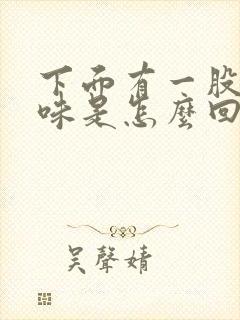 下面有一股
味是怎麼回
吴聲婧